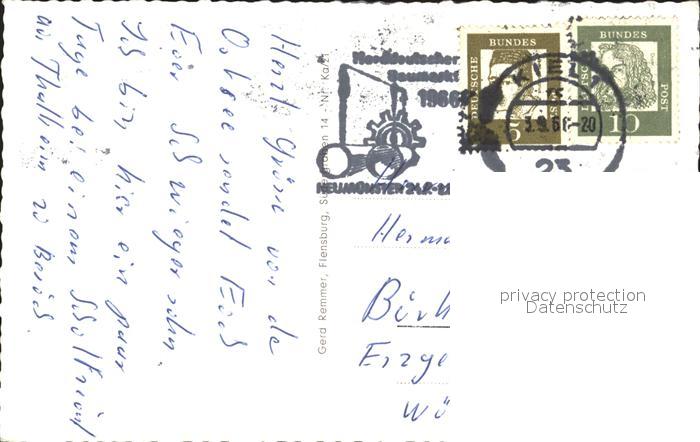 Herzl. Grüße von der
Ostsee sendet Euch
Euer Schwiegersohn.
Ich bin hier ein paar
Tage bei einem Schulfreund
aus Thalheim zu Besuch.
Gerd Remmer, Flensburg, 14 · Nr. Ka/21
Norddeutscher
Baumarkt
1966
NEUMÜNSTER
DEUTSCHE
BUNDES
5
DEUTSCHE
BUNDES
POST
10
KIEL 1
3.9.66-20
23
Herm
Birk
Erzge
privacy protection
Datenschutz